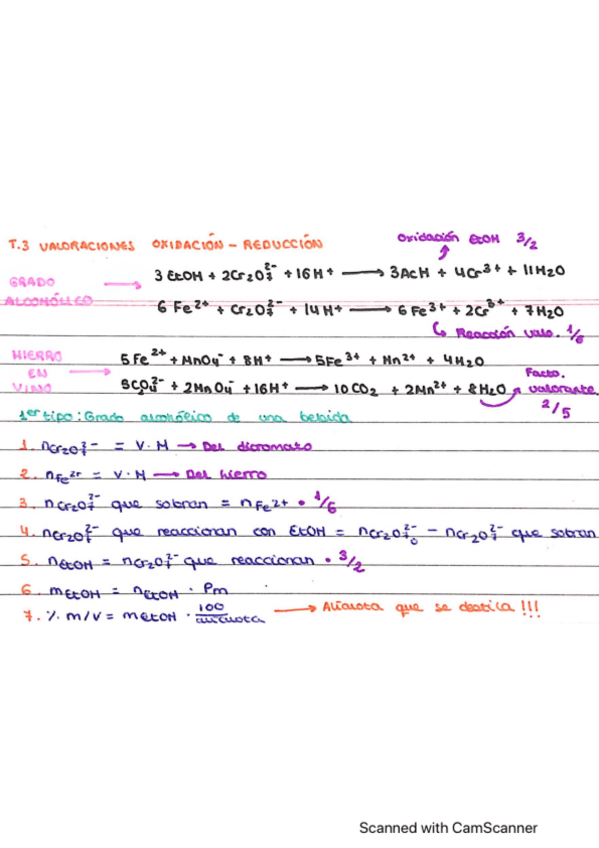 Oxidación EtOH 3/2
T.3 VALORACIONES OXIDACIÓN - REDUCCIÓN
GRADO ALCOHÓLICO → 3 EtOH + 2Cr₂O₇²⁻ + 16H⁺ → 3AcH + 4Cr³⁺ + 11H₂O
6 Fe²⁺ + Cr₂O₇²⁻ + 14H⁺ → 6Fe³⁺ + 2Cr³⁺ + 7H₂O
↳ Reacción valo. 1/6
HIERRO EN VINO → 5Fe²⁺ + MnO₄⁻ + 8H⁺ → 5Fe³⁺ + Mn²⁺ + 4H₂O
+ 2MnO₄⁻ + 16H⁺ → 10CO₂ + 2Mn²⁺ + 8H₂O
Facto. valorante. 2/5
1er tipo: Grado alcohólico de una bebida
1. nCr₂O₇²⁻ = V · M → Del dicromato
2. nFe²⁺ = V · M → Del hierro
3. nCr₂O₇²⁻ que sobran = nFe²⁺ · 1/6
4. nCr₂O₇²⁻ que reaccionan con EtOH = nCr₂O₇²⁻₀ - nCr₂O₇²⁻ que sobran
5. nEtOH = nCr₂O₇²⁻ que reaccionan · 3/2
6. mEtOH = nEtOH · Pm
7. % m/v = mEtOH · 100/alícuota → Alícuota que se destila !!!
Scanned with CamScanner